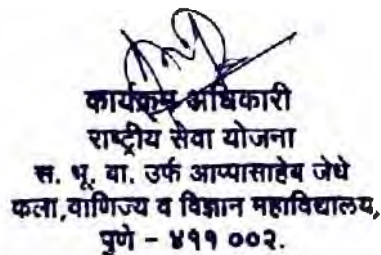 कार्यक्रम अधिकारी
राष्ट्रीय सेवा योजना
स. भू. वा. उर्फ आप्पासाहेब जेधे
कला,वाणिज्य व विज्ञान महाविद्यालय,
पुणे - ४११ ००२.